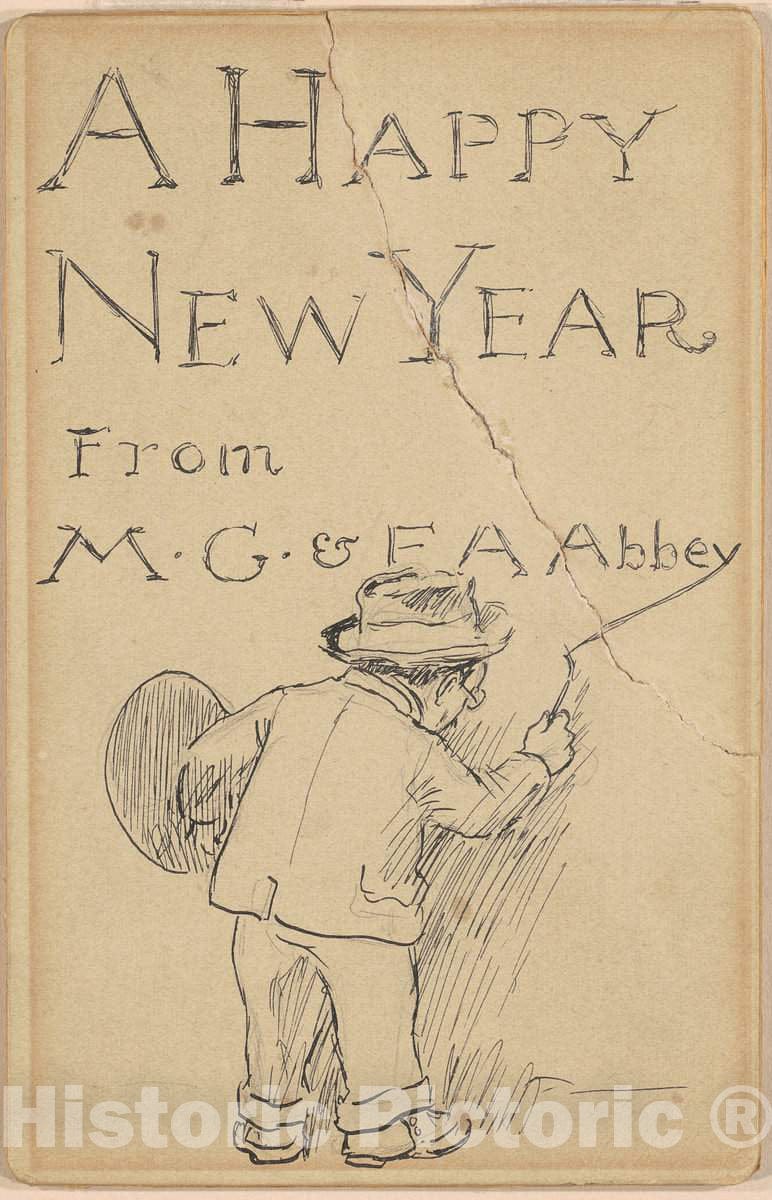 A HAPPY
NEW YEAR
From
M. G. & E A Abbey
Historic Pictoric ®